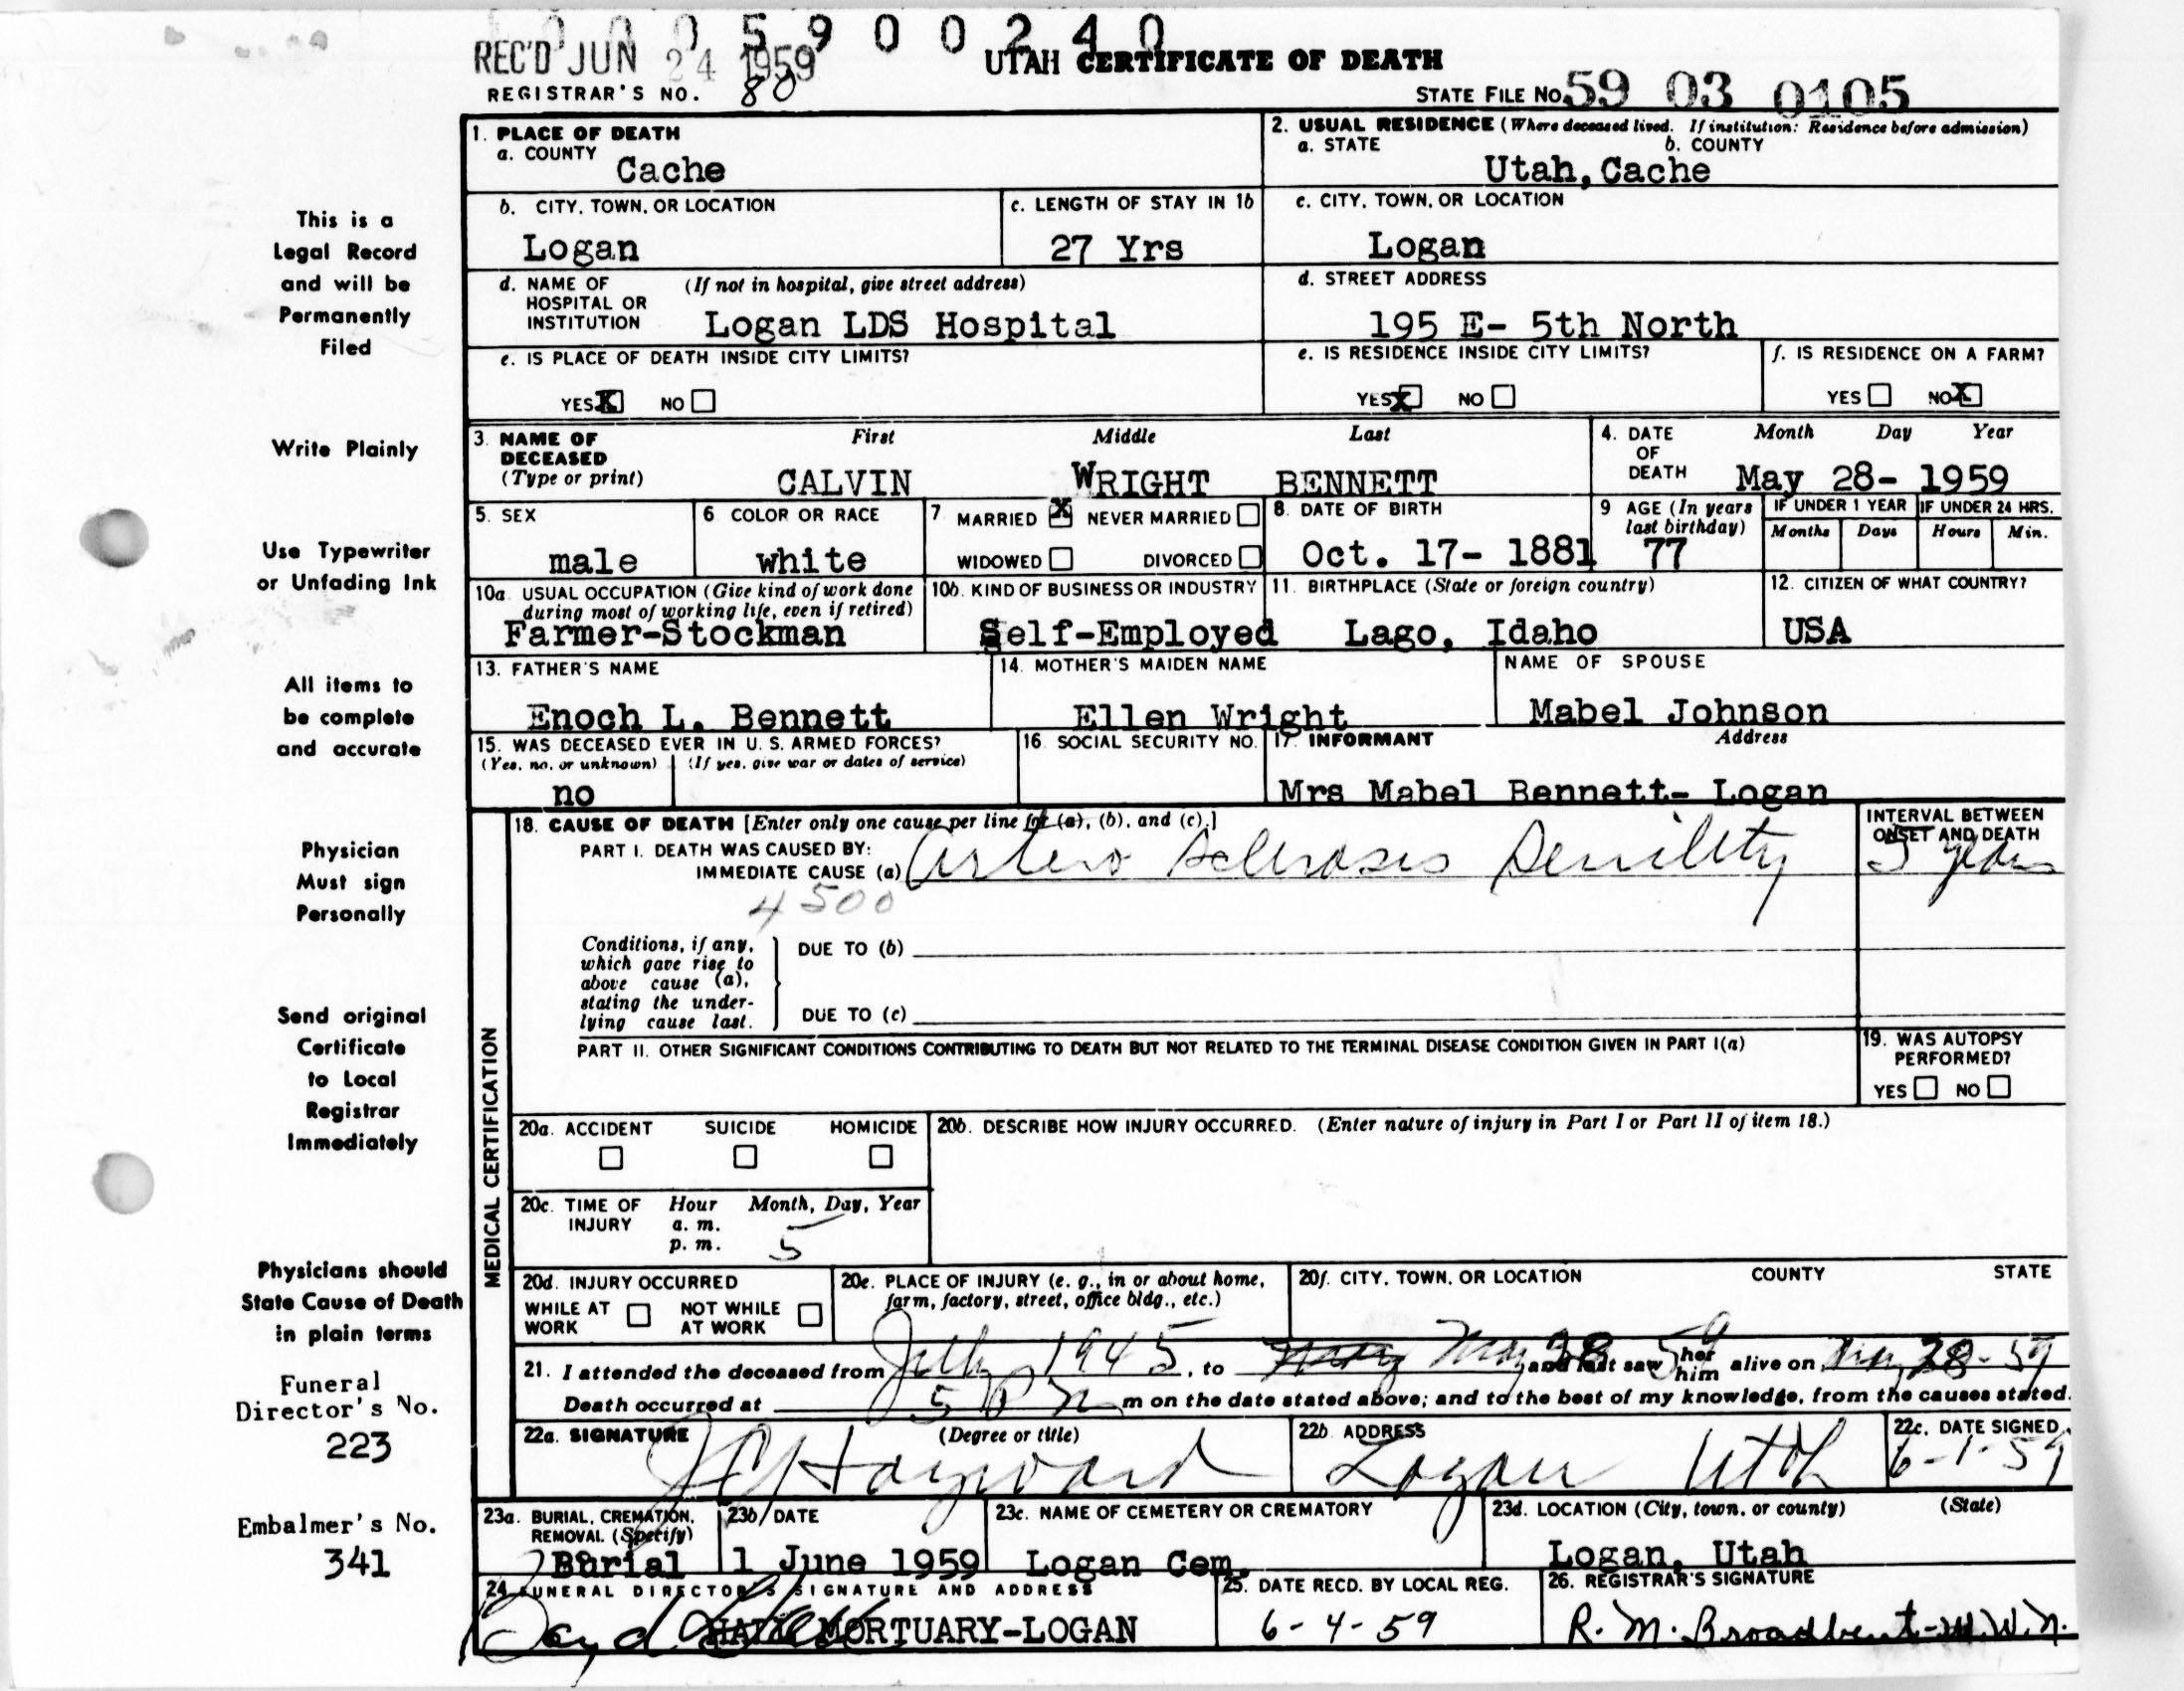 0 0 0 5 9 0 0 2 4 0
REC'D JUN 24 1959
UTAH CERTIFICATE OF DEATH
REGISTRAR'S NO. 80
STATE FILE NO. 59 03 0105
1. PLACE OF DEATH
a. COUNTY
Cache
2. USUAL RESIDENCE (Where deceased lived. If institution: Residence before admission)
a. STATE b. COUNTY
Utah, Cache
b. CITY, TOWN, OR LOCATION
Logan
c. LENGTH OF STAY IN 1b
27 Yrs
c. CITY, TOWN, OR LOCATION
Logan
d. NAME OF HOSPITAL OR INSTITUTION (If not in hospital, give street address)
Logan LDS Hospital
d. STREET ADDRESS
195 E- 5th North
e. IS PLACE OF DEATH INSIDE CITY LIMITS?
YES X NO
e. IS RESIDENCE INSIDE CITY LIMITS?
YES X NO
f. IS RESIDENCE ON A FARM?
YES NO X
3. NAME OF DECEASED (Type or print)
First Middle Last
CALVIN WRIGHT BENNETT
4. DATE OF DEATH Month Day Year
May 28- 1959
5. SEX
male
6 COLOR OR RACE
white
7 MARRIED X NEVER MARRIED
WIDOWED DIVORCED
8. DATE OF BIRTH
Oct. 17- 1881
9 AGE (In years last birthday)
77
IF UNDER 1 YEAR IF UNDER 24 HRS.
Months Days Hours Min.
10a. USUAL OCCUPATION (Give kind of work done during most of working life, even if retired)
Farmer-Stockman
10b. KIND OF BUSINESS OR INDUSTRY
Self-Employed
11. BIRTHPLACE (State or foreign country)
Lago, Idaho
12. CITIZEN OF WHAT COUNTRY?
USA
13. FATHER'S NAME
Enoch L. Bennett
14. MOTHER'S MAIDEN NAME
Ellen Wright
NAME OF SPOUSE
Mabel Johnson
15. WAS DECEASED EVER IN U. S. ARMED FORCES?
(Yes, no, or unknown) (If yes, give war or dates of service)
no
16. SOCIAL SECURITY NO.
17. INFORMANT Address
Mrs Mabel Bennett- Logan
MEDICAL CERTIFICATION
18. CAUSE OF DEATH [Enter only one cause per line for (a), (b), and (c).]
PART I. DEATH WAS CAUSED BY:
IMMEDIATE CAUSE (a) Artero Sclerosis Senility
4500
INTERVAL BETWEEN ONSET AND DEATH
5 years
Conditions, if any, which gave rise to above cause (a), stating the underlying cause last.
DUE TO (b)
DUE TO (c)
PART II. OTHER SIGNIFICANT CONDITIONS CONTRIBUTING TO DEATH BUT NOT RELATED TO THE TERMINAL DISEASE CONDITION GIVEN IN PART I(a)
19. WAS AUTOPSY PERFORMED?
YES NO
20a. ACCIDENT SUICIDE HOMICIDE
20b. DESCRIBE HOW INJURY OCCURRED. (Enter nature of injury in Part I or Part II of item 18.)
20c. TIME OF INJURY Hour Month, Day, Year
a. m.
p. m. 5
20d. INJURY OCCURRED
WHILE AT WORK NOT WHILE AT WORK
20e. PLACE OF INJURY (e. g., in or about home, farm, factory, street, office bldg., etc.)
20f. CITY, TOWN, OR LOCATION COUNTY STATE
21. I attended the deceased from July 1945, to May 28 59 and last saw her him alive on May 28-59
Death occurred at 5 P m m on the date stated above; and to the best of my knowledge, from the causes stated.
22a. SIGNATURE (Degree or title)
Hayward
22b. ADDRESS
Logan Utah
22c. DATE SIGNED
6-1-59
23a. BURIAL, CREMATION, REMOVAL (Specify)
Burial
23b. DATE
1 June 1959
23c. NAME OF CEMETERY OR CREMATORY
Logan Cem.
23d. LOCATION (City, town, or county) (State)
Logan, Utah
24. FUNERAL DIRECTOR'S SIGNATURE AND ADDRESS
HALL MORTUARY-LOGAN
25. DATE RECD. BY LOCAL REG.
6-4-59
26. REGISTRAR'S SIGNATURE
R. M. Broadbent-M.W.N.
This is a
Legal Record
and will be
Permanently
Filed
Write Plainly
Use Typewriter
or Unfading Ink
All items to
be complete
and accurate
Physician
Must sign
Personally
Send original
Certificate
to Local
Registrar
Immediately
Physicians should
State Cause of Death
in plain terms
Funeral
Director's No.
223
Embalmer's No.
341